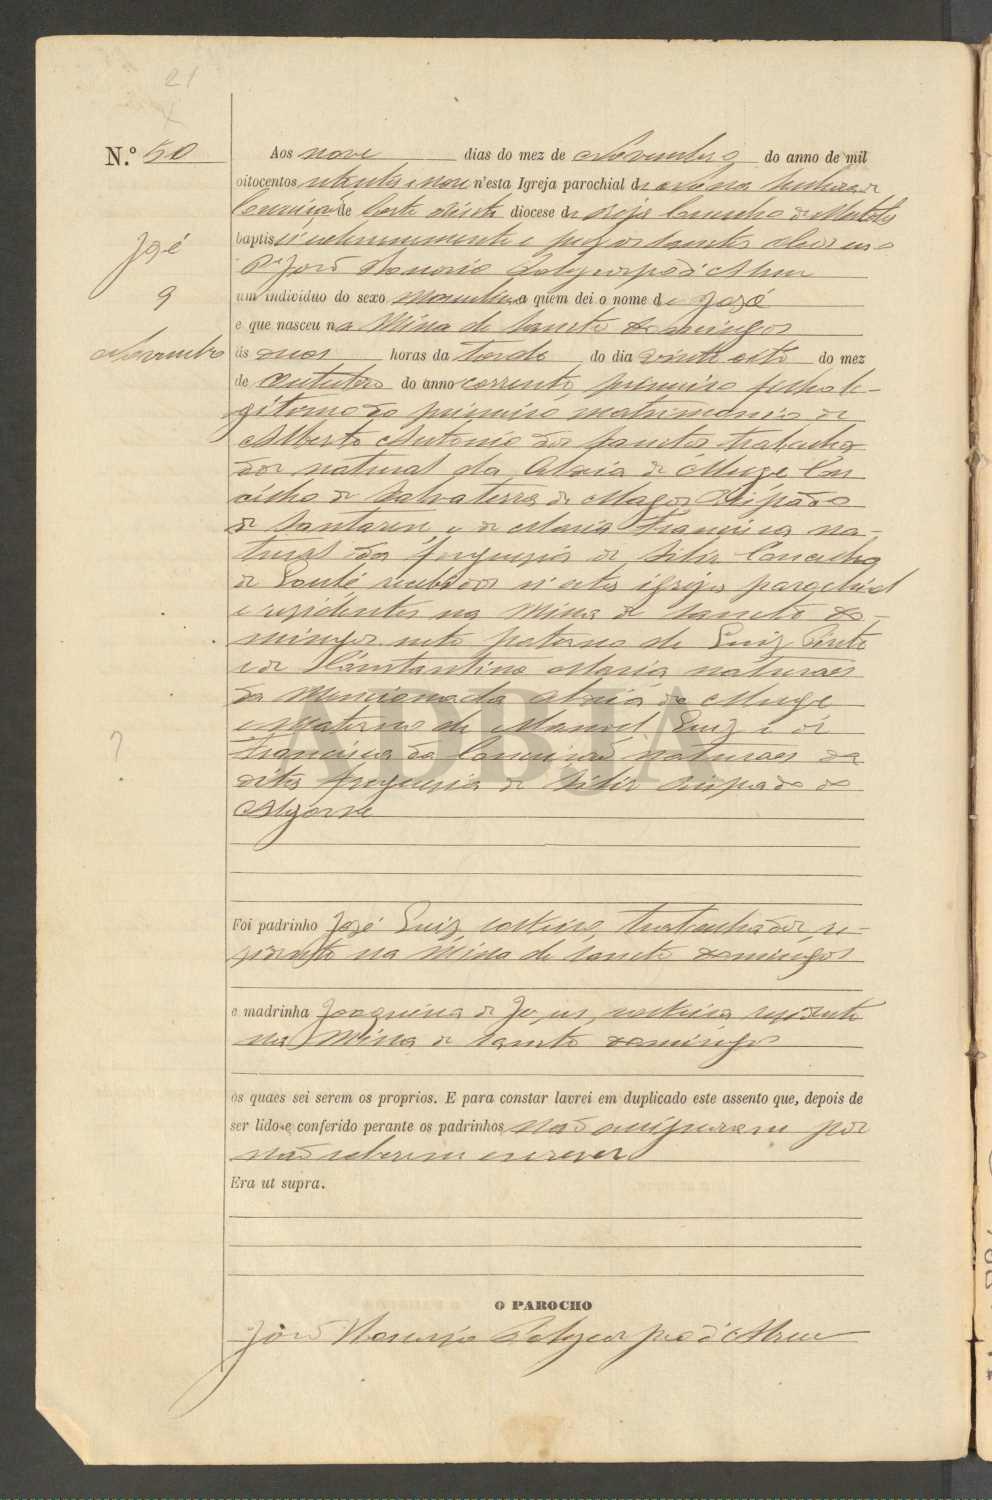 21
N.º 50
José
9
Novembro
?
Aos nove dias do mez de Novembro do anno de mil
oitocentos oitenta e nove n'esta Igreja parochial de Nossa Senhora da
Conceição de Corte do Pinto diocese de Beja Concelho de Mertola
baptisei solemnemente e puz os Santos oleos eu o
P.e João Honorio Polycarpo d'Abreu
um individuo do sexo Masculino a quem dei o nome de José
e que nasceu na Mina de Sancto Domingos
ás duas horas da Tarde do dia vinte oito do mez
de Outubro do anno corrente, primeiro filho le-
gitimo do primeiro matrimonio de
Alberto Antonio dos Sanctos trabalha
dor natural da Aldeia de Muge Con
celho de Salvaterra de Magos Bispado
de Santarem e de Maria Francisca na-
tural da freguesia de Silir Concelho
de Loulé recebidos n'esta igreja parochial
e residentes na Mina de Sancto Do-
mingos neto paterno de Luiz Pinto
e de Constantina Maria naturaes
da Mencionada aldeia de Muge
e Materno de Manoel Luiz e de
Francisca da Conceição naturaes da
dita freguesia de Silir Bispado do
Algarve
Foi padrinho José Luiz, solteiro, trabalhador, re-
sidente na Mina de Sancto Domingos
e madrinha Joaquina de Jesus, solteira residente
na Mina de Sancto Domingos
os quaes sei serem os proprios. E para constar lavrei em duplicado este assento que, depois de
ser lido e conferido perante os padrinhos não assignaram por
não saberem escrever
Era ut supra.
O PAROCHO
João Honorio Polycarpo d'Abreu
ADBJA